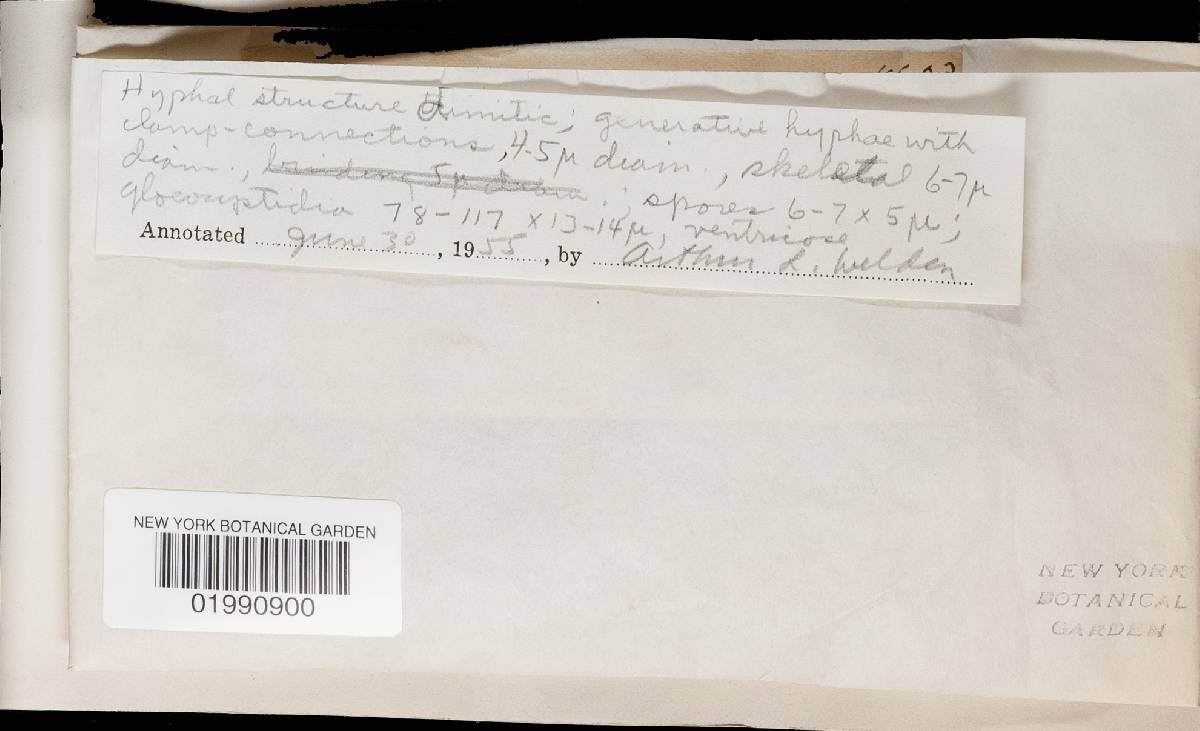 Hyphal structure dimitic; generative hyphae with
clamp-connections, 4-5μ diam., skeletal 6-7μ
diam., binding 5μ diam.; spores 6-7 x 5μ;
gloeocystidia 78-117 x 13-14μ, ventricose
Annotated June 30, 1955, by Arthur L. Welden
NEW YORK BOTANICAL GARDEN
01990900
NEW YORK
BOTANICAL
GARDEN